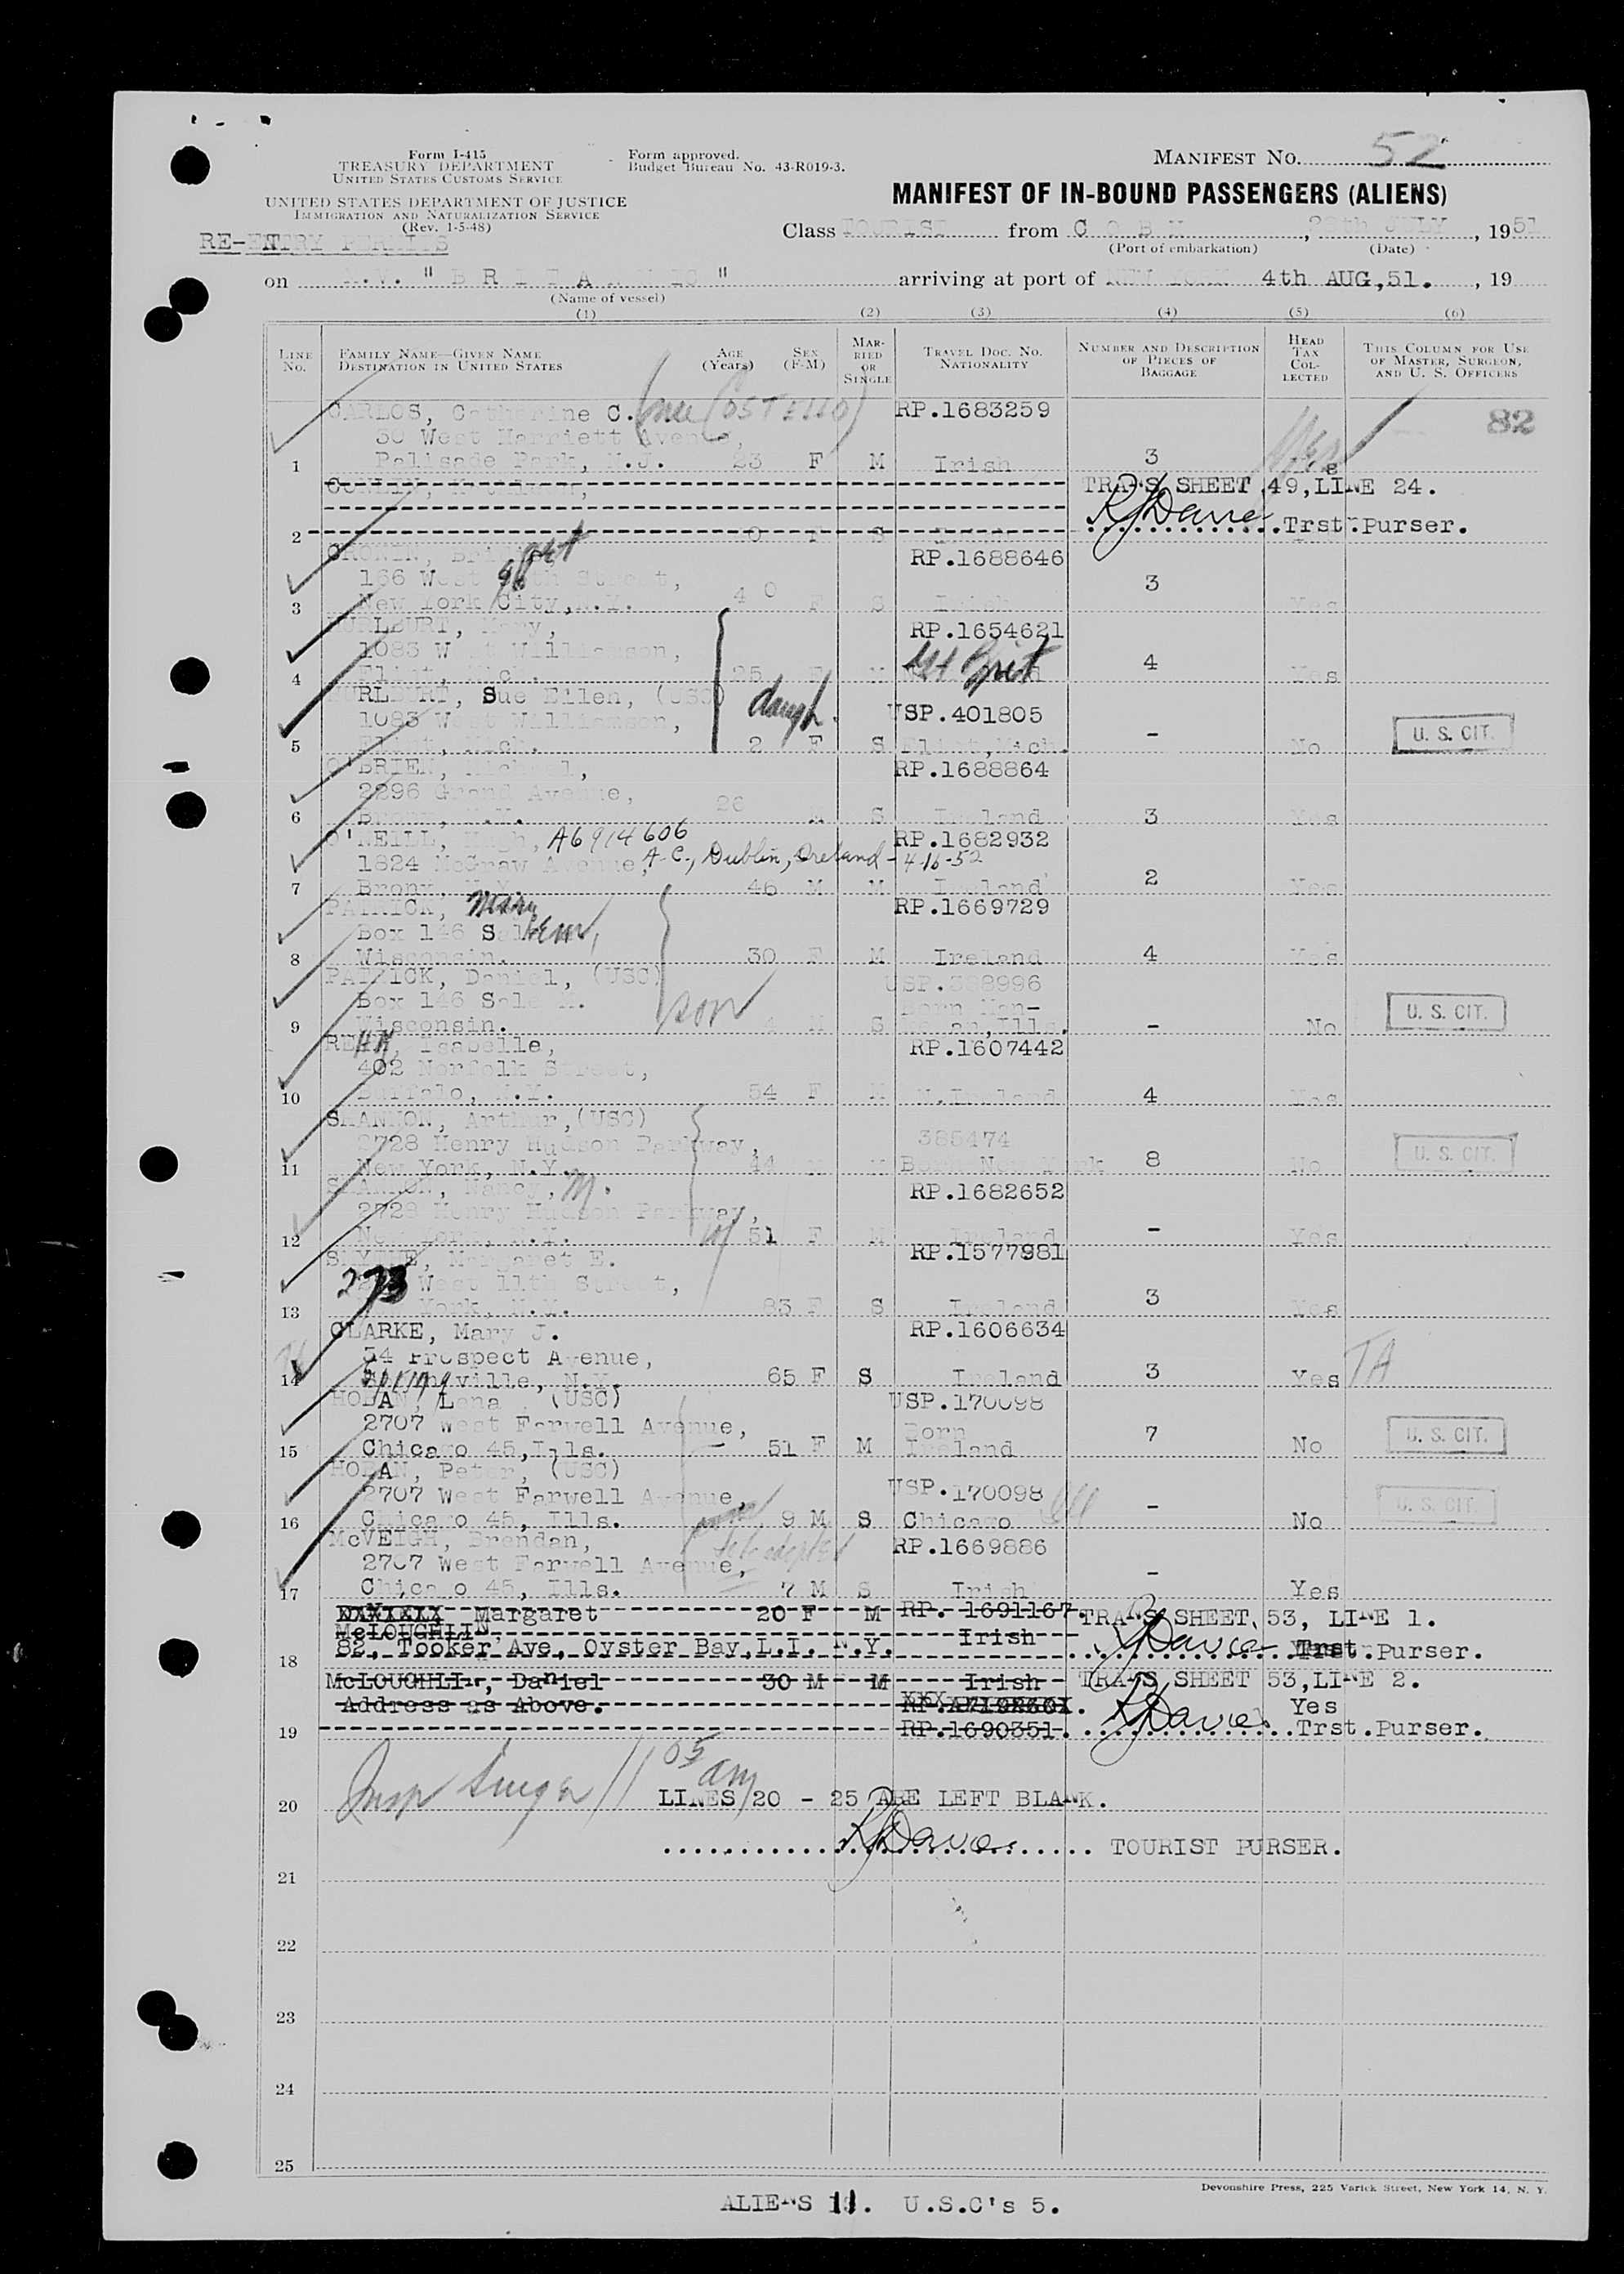 Form I-415
TREASURY DEPARTMENT
UNITED STATES CUSTOMS SERVICE
UNITED STATES DEPARTMENT OF JUSTICE
IMMIGRATION AND NATURALIZATION SERVICE
(Rev. 1-5-48)
RE-ENTRY PERMITS
Form approved.
Budget Bureau No. 43-R019-3.
MANIFEST NO. 52
MANIFEST OF IN-BOUND PASSENGERS (ALIENS)
Class TOURIST from C O B H, JULY, 1951
(Port of embarkation) (Date)
on M.V. "B R I T A N N I C" arriving at port of NEW YORK 4th AUG,51. , 19
(Name of vessel)
(1) (2) (3) (4) (5) (6)
LINE No. FAMILY NAME—GIVEN NAME DESTINATION IN UNITED STATES AGE (Years) SEX (F-M) MARRIED OR SINGLE TRAVEL DOC. NO. NATIONALITY NUMBER AND DESCRIPTION OF PIECES OF BAGGAGE HEAD TAX COLLECTED THIS COLUMN FOR USE OF MASTER, SURGEON, AND U. S. OFFICERS
CARLOS, Catherine C. (nee COSTELLO) RP.1683259 82
30 West Harriett Avenue,
1 Palisade Park, N.J. 23 F M Irish 3
CONLIN, TRANS SHEET 49, LINE 24.
2 S Trst. Purser.
CRONIN, Bridget RP.1688646
166 West 96th Street,
3 New York City, N.Y. 40 F S Irish 3 Yes
HURLBURT, Mary, RP.1654621
1083 West Williamson,
4 Flint, Mich. 25 F M Gt Brit 4 Yes
HURLBURT, Sue Ellen, (USC) daugh. USP.401805
1083 West Williamson,
5 Flint, Mich. 2 F S Flint, Mich. - No U. S. CIT.
O'BRIEN, Michael, RP.1688864
2296 Grand Avenue,
6 Bronx, N.Y. 26 M S Ireland 3 Yes
O'NEILL, Hugh, A6914606 RP.1682932
1824 McGraw Avenue, A-C., Dublin, Ireland - 4-16-52
7 Bronx, N.Y. 46 M M Ireland 2 Yes
PATRICK, Mary RP.1669729
Box 146 Salem,
8 Wisconsin. 30 F M Ireland 4 Yes
PATRICK, Daniel, (USC) USP.
Box 146 Salem. son
9 Wisconsin. M S - No U. S. CIT.
REHM, Isabelle, RP.1607442
402 Norfolk Street,
10 Buffalo, N.Y. 54 F M N.Ireland 4 Yes
SHANNON, Arthur, (USC) 385474
2728 Henry Hudson Parkway,
11 New York, N.Y. 44 M M Born New York 8 No U. S. CIT.
SHANNON, Nancy, M. RP.1682652
2728 Henry Hudson Parkway,
12 New York, N.Y. 51 F M Ireland - Yes
Margaret E. RP.1577981
273 West 11th Street,
13 New York, N.Y. 83 F S Ireland 3 Yes
CLARKE, Mary J. RP.1606634
34 Prospect Avenue,
14 65 F S Ireland 3 Yes TA
HOBAN, Lena, (USC) USP.170098
2707 West Farwell Avenue, Born
15 Chicago 45, Ills. 51 F M Ireland 7 No U. S. CIT.
HOBAN, Peter, (USC)
2707 West Farwell Avenue, USP.170098
16 Chicago 45, Ills. 9 M S Chicago - No U. S. CIT.
McVEIGH, Brendan, RP.1669886
2707 West Farwell Avenue,
17 Chicago 45, Ills. 7 M S Irish - Yes
Margaret 20 F M RP. 1691167. TRANS SHEET 53, LINE 1.
McLOUGHLIN
18 82, Tooker Ave, Oyster Bay, L.I. N.Y. Irish Trst. Purser.
McLOUGHLIN, Daniel 30 M M Irish TRANS SHEET 53, LINE 2.
Address as Above. Yes
19 RP.1690351. Trst. Purser.
Insp Singer 11 05 am
20 LINES 20 - 25 ARE LEFT BLANK.
TOURIST PURSER.
21
22
23
24
25
Devonshire Press, 225 Varick Street, New York 14, N. Y.
ALIENS 11. U.S.C's 5.